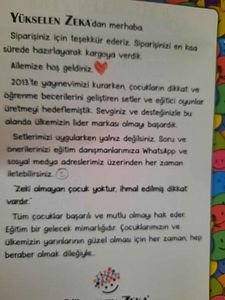 YÜKSELEN ZEKA'dan merhaba
Siparişiniz için teşekkür ederiz. Siparişinizi en kısa
sürede hazırlayarak kargoya verdik.
Ailemize hoş geldiniz.
2013'te yayınevimizi kurarken, çocukların dikkat ve
öğrenme becerilerini geliştiren setler ve eğitici oyunlar
üretmeyi hedeflemiştik. Sevginiz ve desteğinizle bu
alanda ülkemizin lider markası olmayı başardık.
Setlerimizi uygularken yalnız değilsiniz. Soru ve
önerilerinizi eğitim danışmanlarımıza WhatsApp ve
sosyal medya adreslerimiz üzerinden her zaman
iletebilirsiniz.
"Zeki olmayan çocuk yoktur, ihmal edilmiş dikkat
vardır."
Tüm çocuklar başarılı ve mutlu olmayı hak eder.
Eğitim bir gelecek mimarlığıdır. Çocuklarımızın ve
ülkemizin yarınlarının güzel olması için her zaman, hep
beraber olmak dileğiyle...